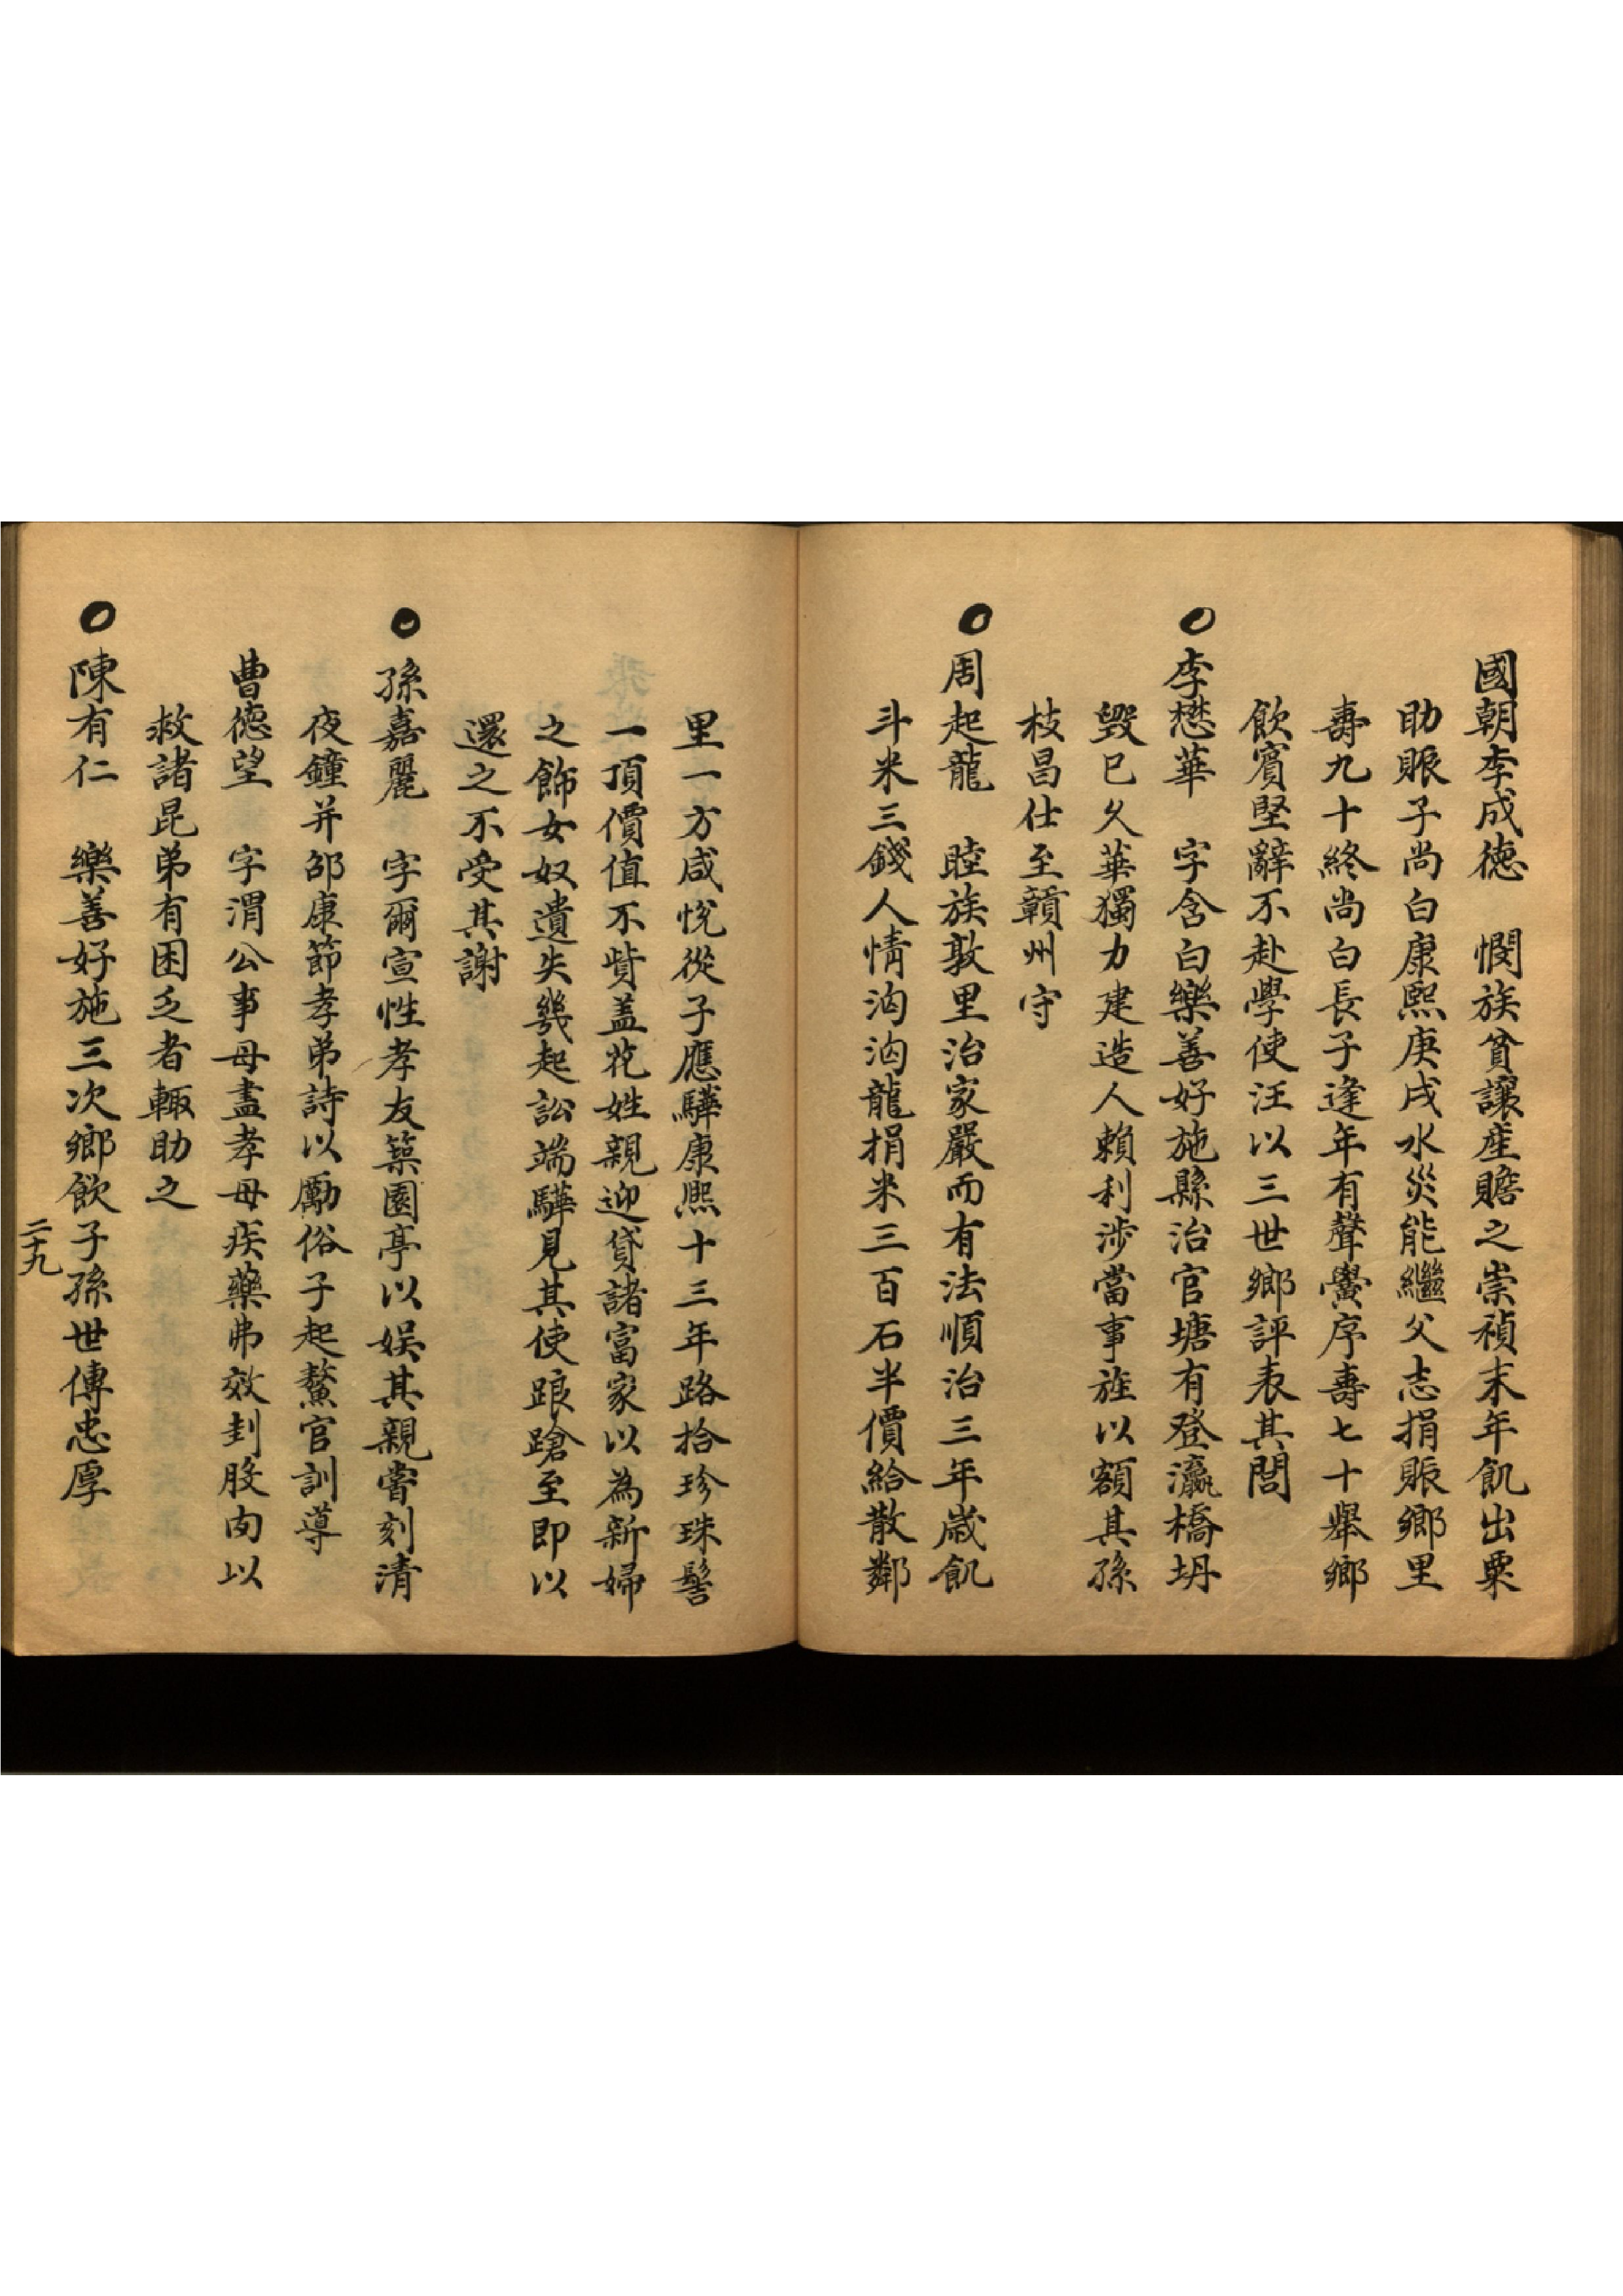 國朝李成德　憫族貧讓産贍之崇禎末年飢出粟
助賑子尚白康熙庚戌水災能繼父志捐賑鄉里
壽九十終尚白長子逢年有聲黌序壽七十舉鄉
飲賓堅辭不赴學使汪以三世鄉評表其閭
○李懋華　字含白樂善好施縣治官塘有登瀛橋坍
毀已久華獨力建造人賴利涉當事旌以額其孫
枝昌仕至贛州守
○周起龍　睦族敦里治家嚴而有法順治三年歲飢
斗米三錢人情洶洶龍捐米三百石半價給散鄰
里一方咸悅從子應驊康熙十三年路拾珍珠髻
一頂價值不貲盖花姓親迎貸諸富家以為新婦
之飾女奴遺失幾起訟端驊見其使踉蹌至即以
還之不受其謝
○孫嘉麗　字爾宣性孝友築園亭以娛其親嘗刻清
夜鐘并邵康節孝弟詩以勵俗子起鰲官訓導
曹德望　字渭公事母盡孝母疾藥弗效刲股肉以
救諸昆弟有困乏者輙助之
○陳有仁　樂善好施三次鄉飲子孫世傳忠厚
二十九